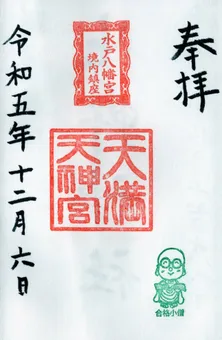 奉拝
水戸八幡宮
境内鎮座
天満
天神宮
合格小僧
令和五年十二月六日